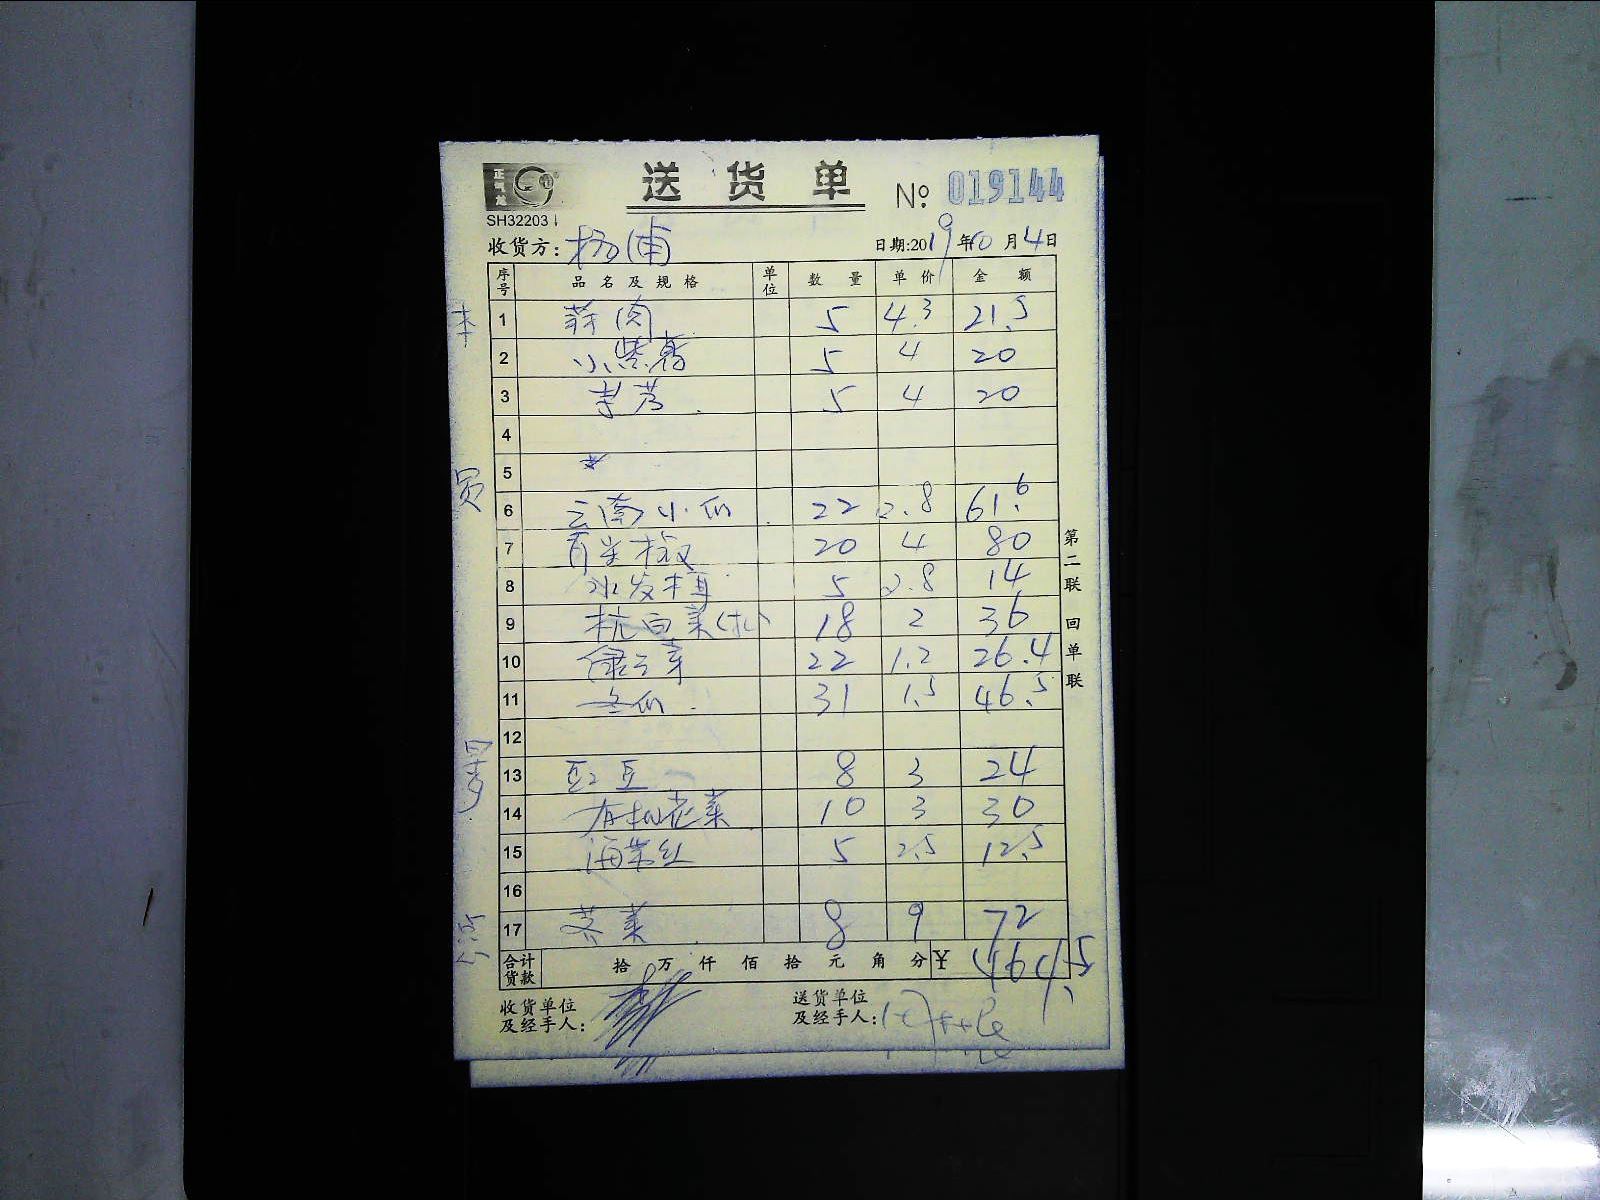 正气龙
送货单 № 019144
SH32203
收货方: 杨浦 日期:2019年10月4日
序号 品名及规格 单位 数量 单价 金额
1 蒜肉 5 4.3 21.5
2 小紫薯 5 4 20
3 5 4 20
4
5
6 云南小瓜 22 2.8 61.6
7 青尖椒 20 4 80
8 水发木耳 5 2.8 14
9 杭白菜(扎) 18 2 36
10 绿豆芽 22 1.2 26.4
11 冬瓜 31 1.5 46.5
12
13 豇豆 8 3 24
14 有机花菜 10 3 30
15 海带丝 5 2.5 12.5
16
17 荠菜 8 9 72
合计货款 拾 万 仟 佰 拾 元 角 分 ¥
收货单位及经手人:
送货单位及经手人:
第二联 回单联